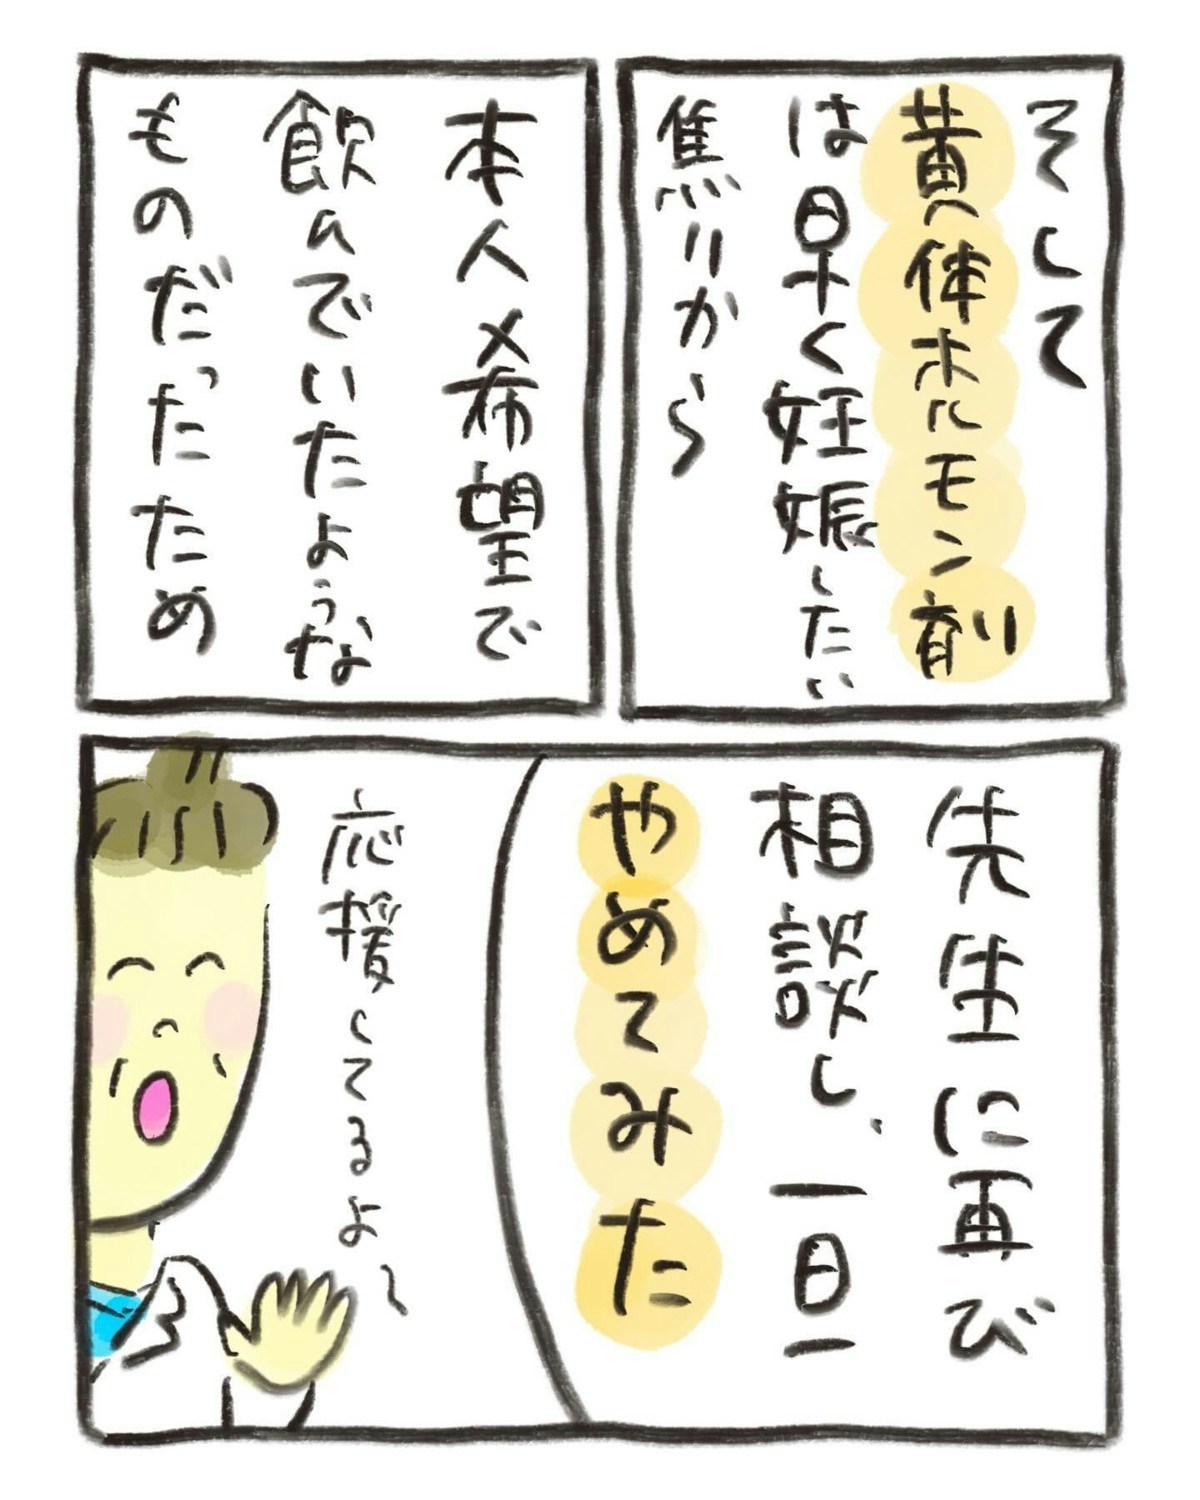 そして
黄体ホルモン剤
は早く妊娠したい
焦りから
本人希望で
飲んでいたような
ものだったため
先生に再び
相談し、一旦
やめてみた
応援してるよ〜